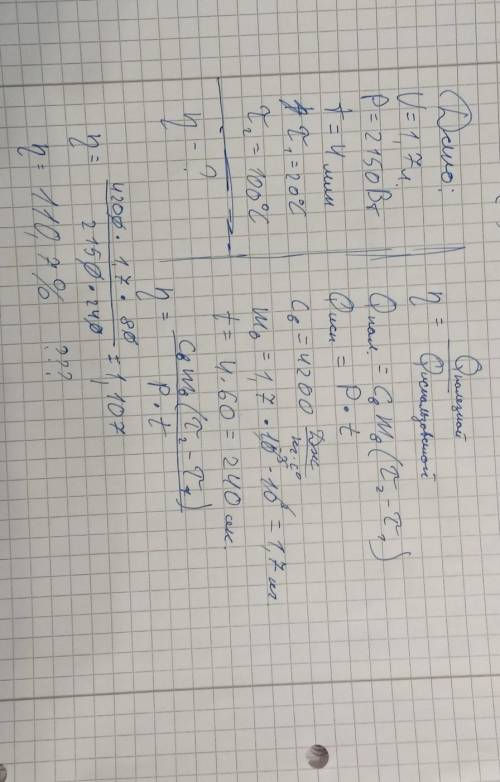 Дано:
V = 1,7 л.
P = 2150 Вт
t = 4 мин
τ₁ = 20°C
τ₂ = 100°C
η - ?
η = Qполезной / Qиспользованной
Qпол. = Cв mв (τ₂ - τ₁)
Qисп = P · t
Cв = 4200 Дж / кг·C°
mв = 1,7 · 10⁻³ · 10³ = 1,7 кг
t = 4 · 60 = 240 сек.
η = Cв mв (τ₂ - τ₁) / P · t
η = 4200 · 1,7 · 80 / 2150 · 240 = 1,107
η = 110,7% ???